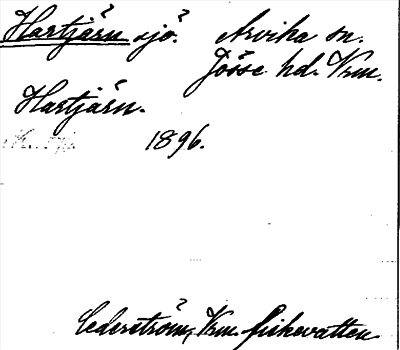 Hartjärn sjö. Arvika sn.
Jösse hd. Vrm.
Hartjärn.
1896.
Cederström, Vrm. fiskevatten